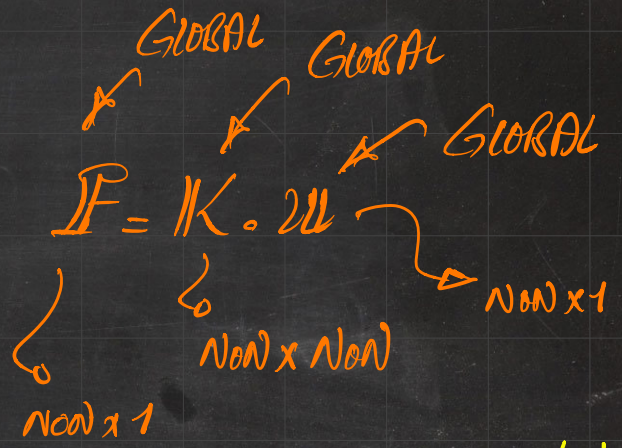 GLOBAL
GLOBAL
GLOBAL
F = K . U
NON x 1
NON x NON
NON x 1